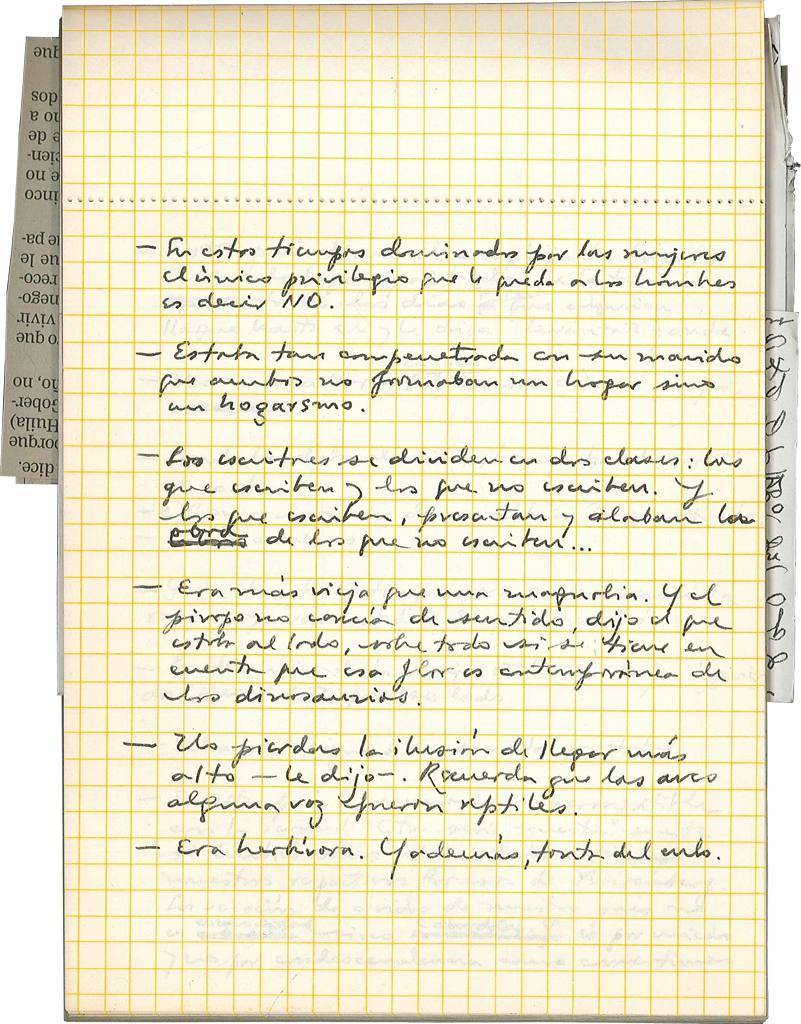 — En estos tiempos dominados por las mujeres
el único privilegio que le queda a los hombres
es decir NO.
— Estaba tan compenetrada con su marido
que ambos no formaban un hogar sino
un hogarsmo.
— Los escritores se dividen en dos clases: los
que escriben y los que no escriben. Y
los que escriben, presentan y alaban la
obra de los que no escriben...
— Era más vieja que una magnolia. Y el
piropo no carecía de sentido, dijo el que
estaba al lado, sobre todo si se tiene en
cuenta que esa flor es contemporánea de
los dinosaurios.
— No pierdas la ilusión de llegar más
alto — le dijo —. Recuerda que las aves
alguna vez fueron reptiles.
— Era herbívora. Y además, tonta del culo.
que
dos
no a
e de
cien-
e, no
inco
ue pa-
ue le
reco-
nego-
vivir
o que
ño, no
Gober-
Huila)
porque
dice: